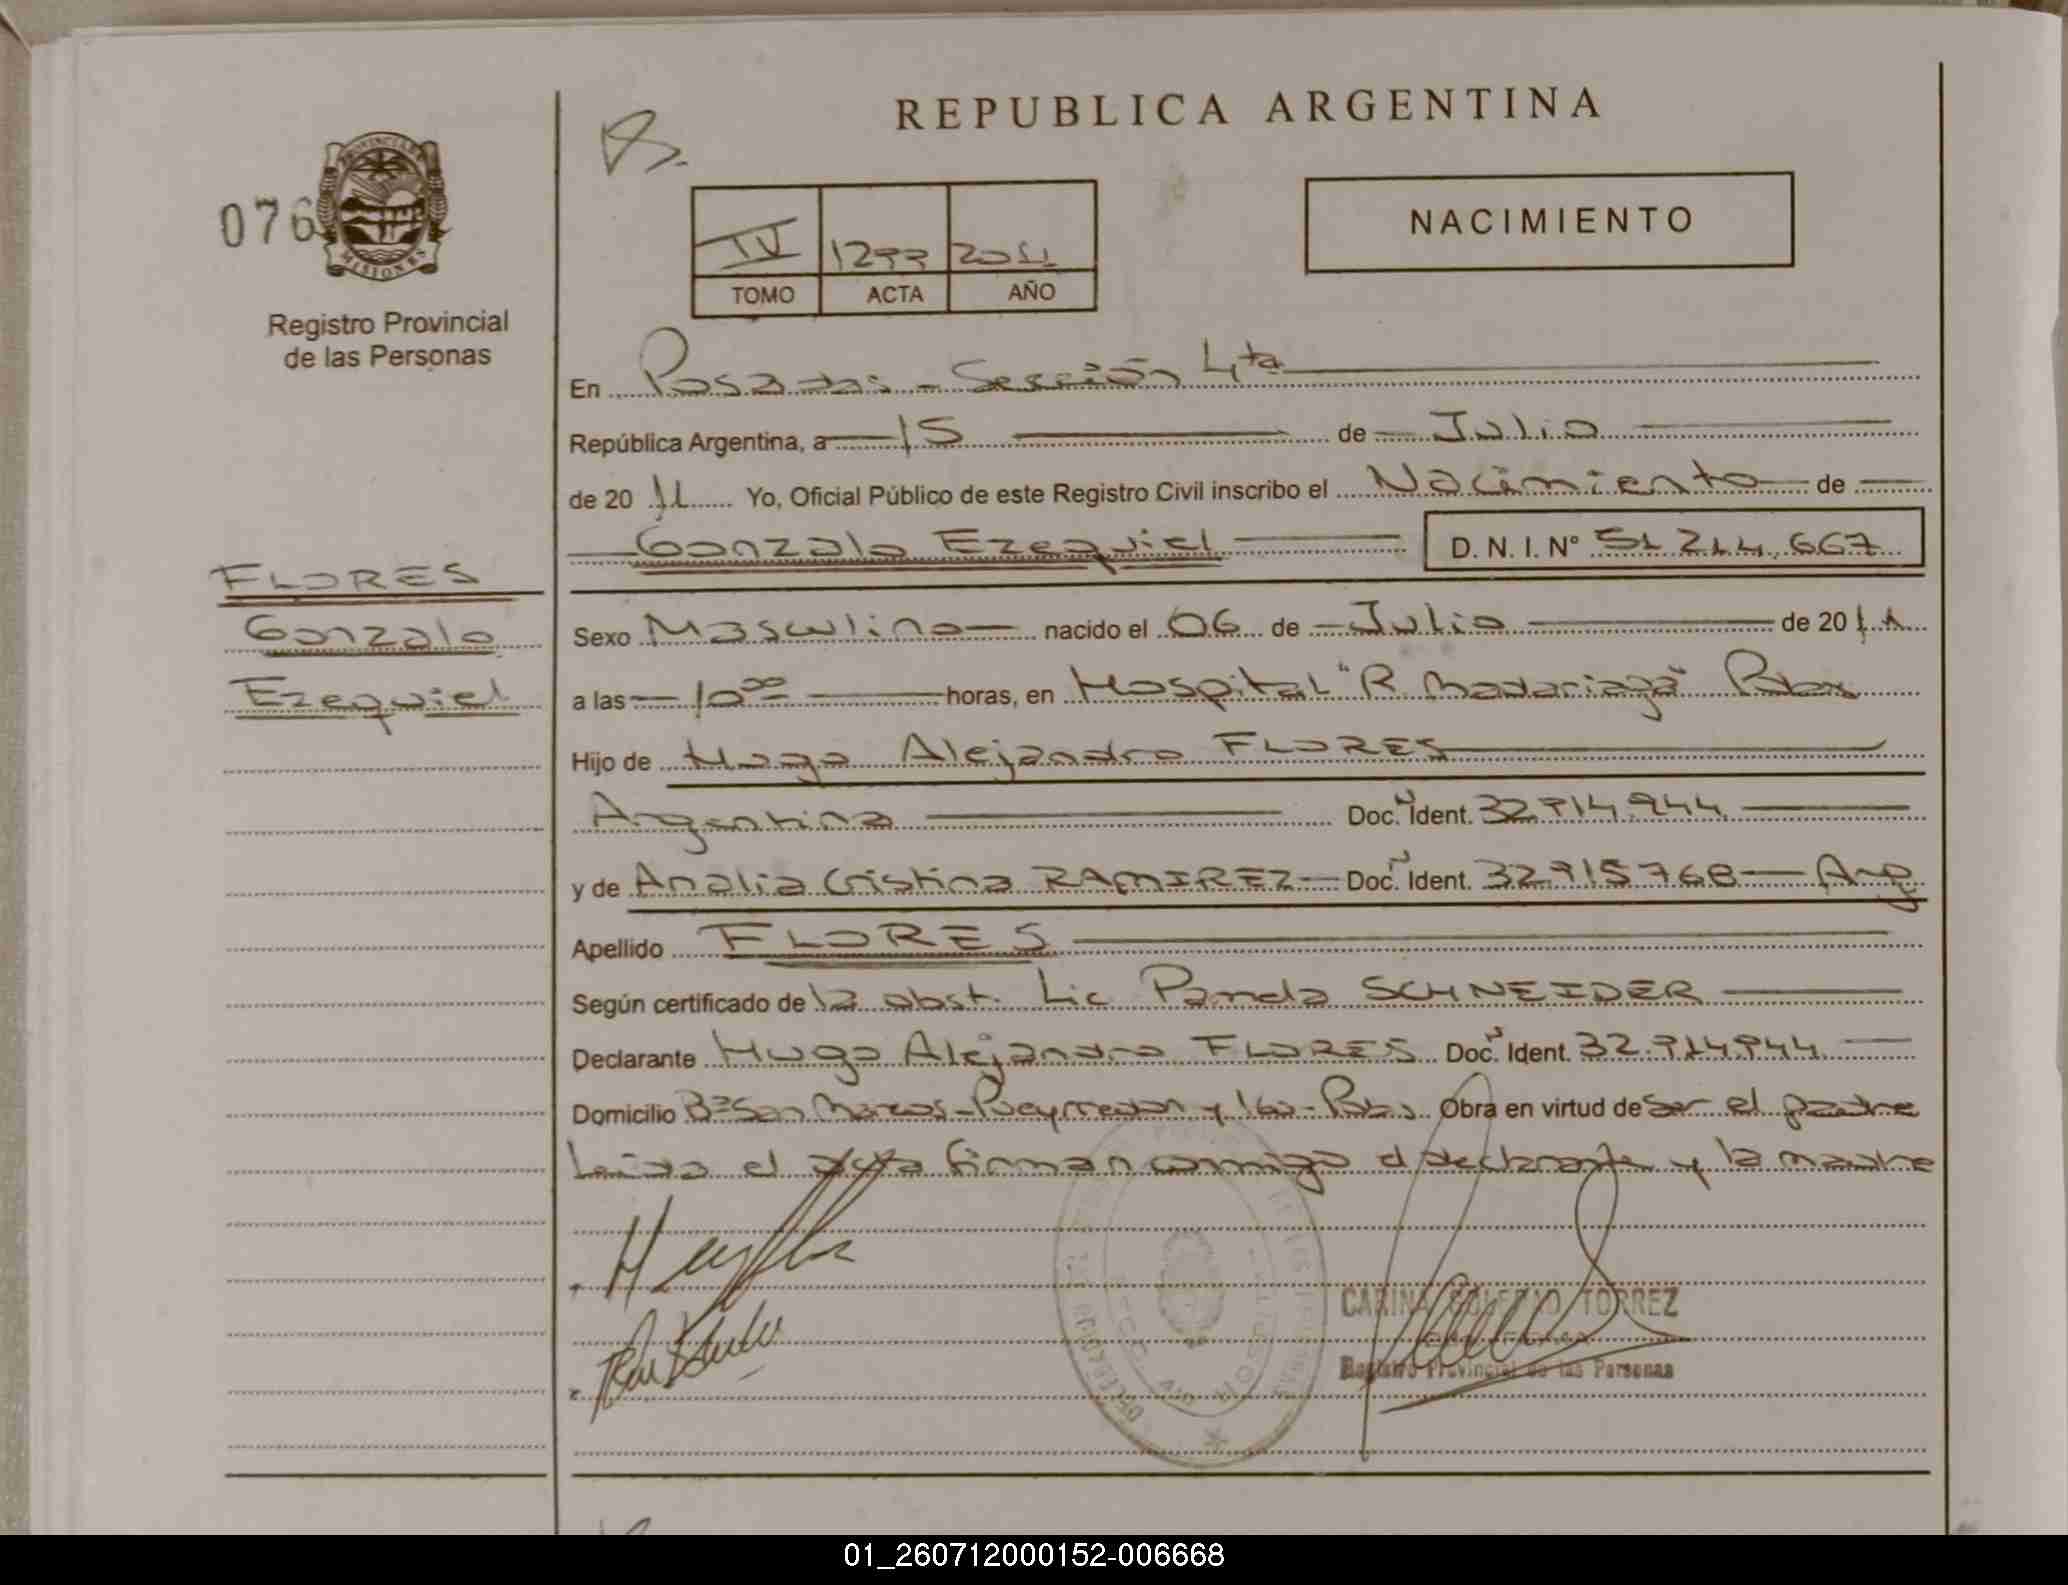 REPUBLICA ARGENTINA
076
PROVINCIA DE MISIONES
Registro Provincial
de las Personas
IV 2011
TOMO ACTA AÑO
NACIMIENTO
En Posadas - Sección 4ta
República Argentina, a 15 de Julio
de 20 11 Yo, Oficial Público de este Registro Civil inscribo el Nacimiento de
Gonzalo Ezequiel D. N. I. N° 51 214.667
FLORES
Gonzalo
Ezequiel
Sexo Masculino nacido el 06 de Julio de 20 11
a las 10 00 horas, en Hospital "R. Madariaga"
Hijo de Hugo Alejandro FLORES
Argentina Doc. Ident. 32.914.944
y de Analia Cristina RAMIREZ Doc. Ident. 32.915768 Arg
Apellido FLORES
Según certificado de la obst. Lic SCHNEIDER
Declarante Hugo Alejandro FLORES Doc. Ident. 32.914.944
Domicilio B° San Marcos - Pueyrredon y Obra en virtud de ser el padre
Leida el acta firman conmigo el declarante y la madre
CARINA SOLEDAD TORREZ
Registro Provincial de las Personas
01_260712000152-006668